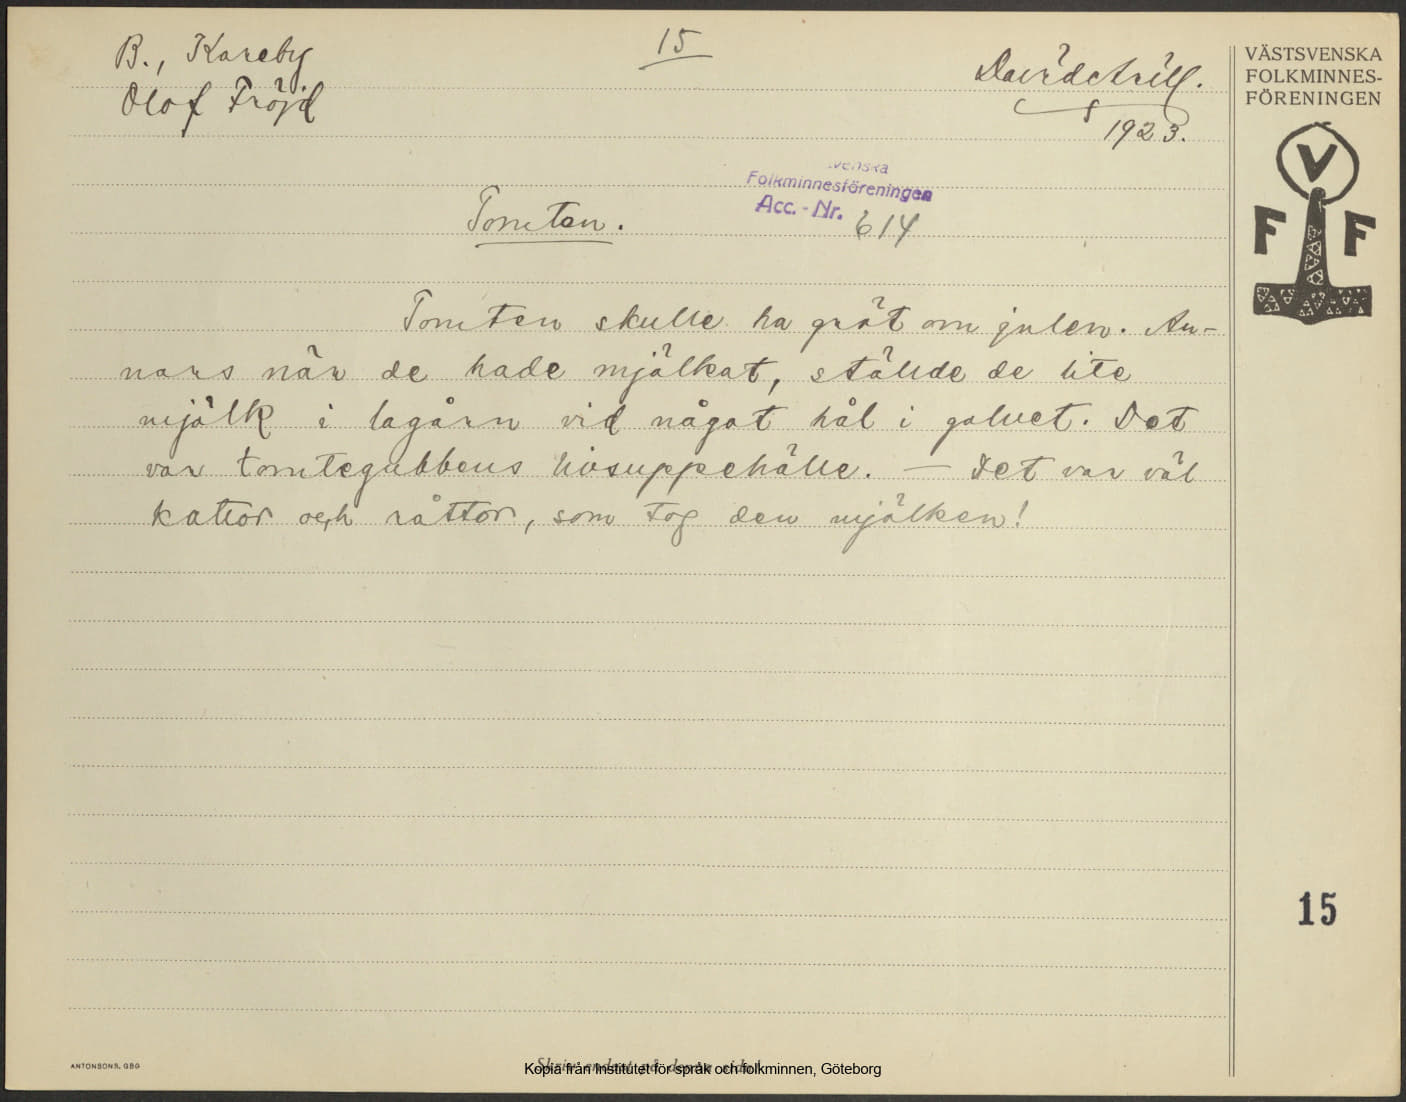 B., Kareby
Olof Fröjd
15
David Arill.
1923.
Folkminnesföreningen
Acc.-Nr. 614
Tomten.
Tomten skulle ha gröt om julen. An-
nars när de hade mjölkat, stälde de lite
mjölk i lagårn vid något hål i golvet. Det
var tomtegubbens livsuppehälle. — Det var väl
kattor och råttor, som tog den mjölken!
VÄSTSVENSKA
FOLKMINNES-
FÖRENINGEN
V
F F
15
ANTONSONS, GBG
Kopia från Institutet för språk och folkminnen, Göteborg